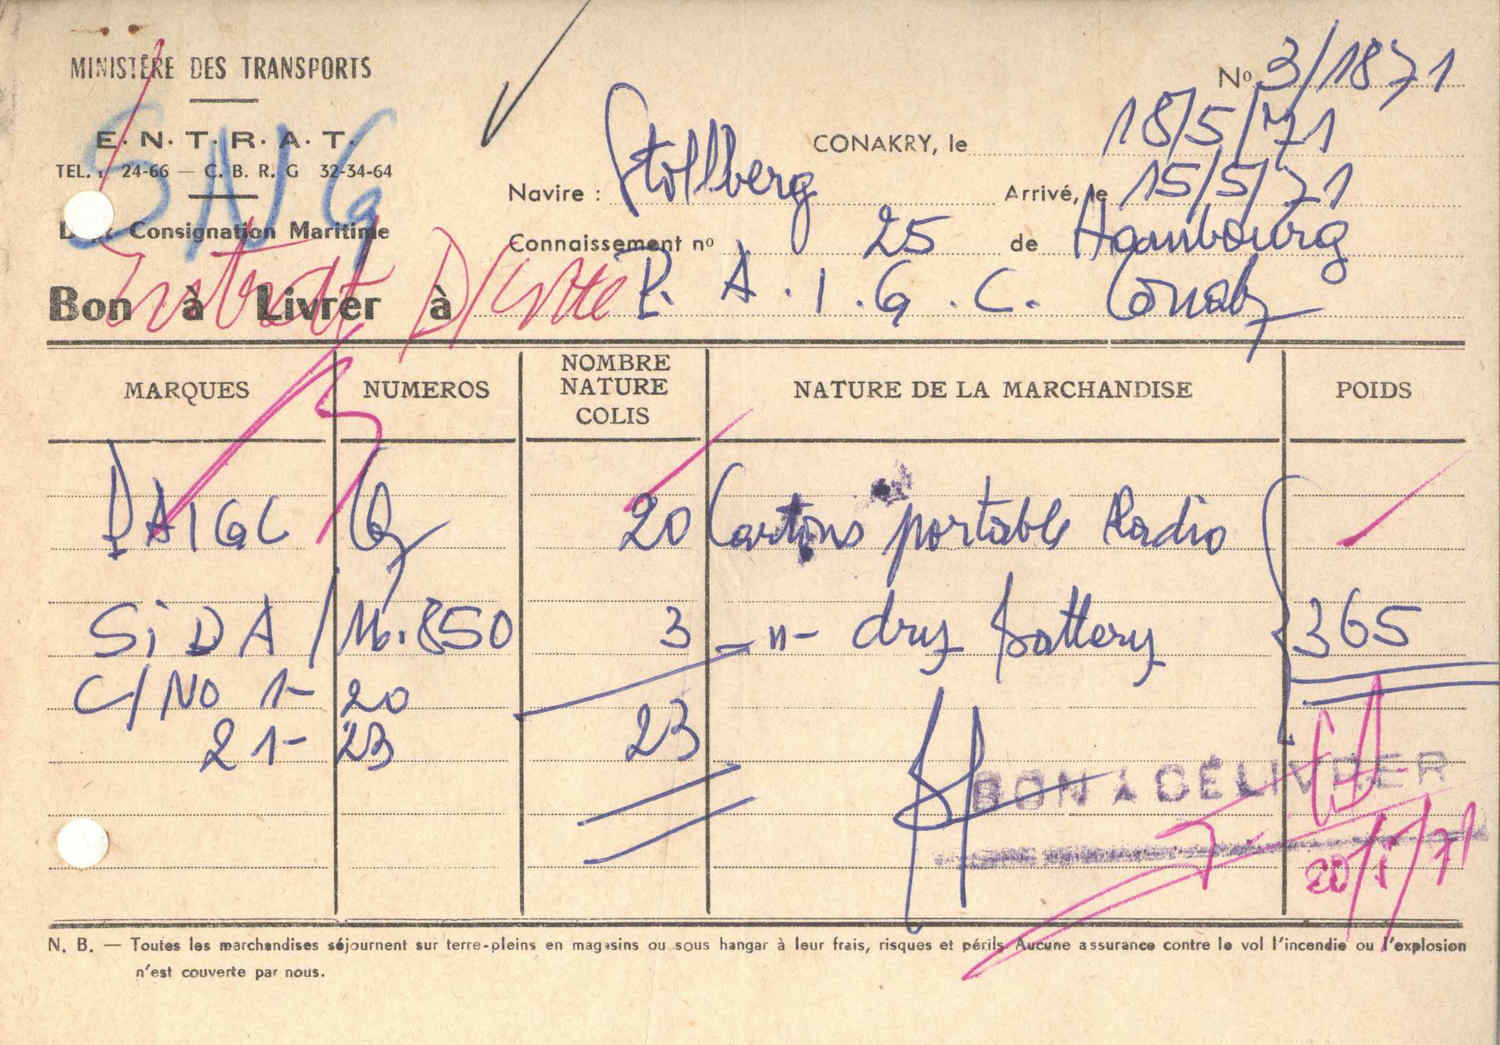 MINISTÈRE DES TRANSPORTS
E. N. T. R. A. T.
TEL. : 24-66 — C. B. R. G 32-34-64
SAIG
Dépt Consignation Maritime
No 3/1871
CONAKRY, le 18/5/71
Navire : Stollberg Arrivé, le 15/5/71
Connaissement no 25 de Hambourg
Bon à Livrer à P. A. I. G. C. Conakry
MARQUES NUMEROS NOMBRE NATURE COLIS NATURE DE LA MARCHANDISE POIDS
PAIGC 20 Cartons portable Radio
SiDA / 16.850 3 -"- dry battery 365
C/No 1- 20
21- 23 23
BON A DÉLIVRER
20/5/71
N. B. — Toutes les marchandises séjournent sur terre-pleins en magasins ou sous hangar à leur frais, risques et périls Aucune assurance contre le vol l'incendie ou l'explosion
n'est couverte par nous.